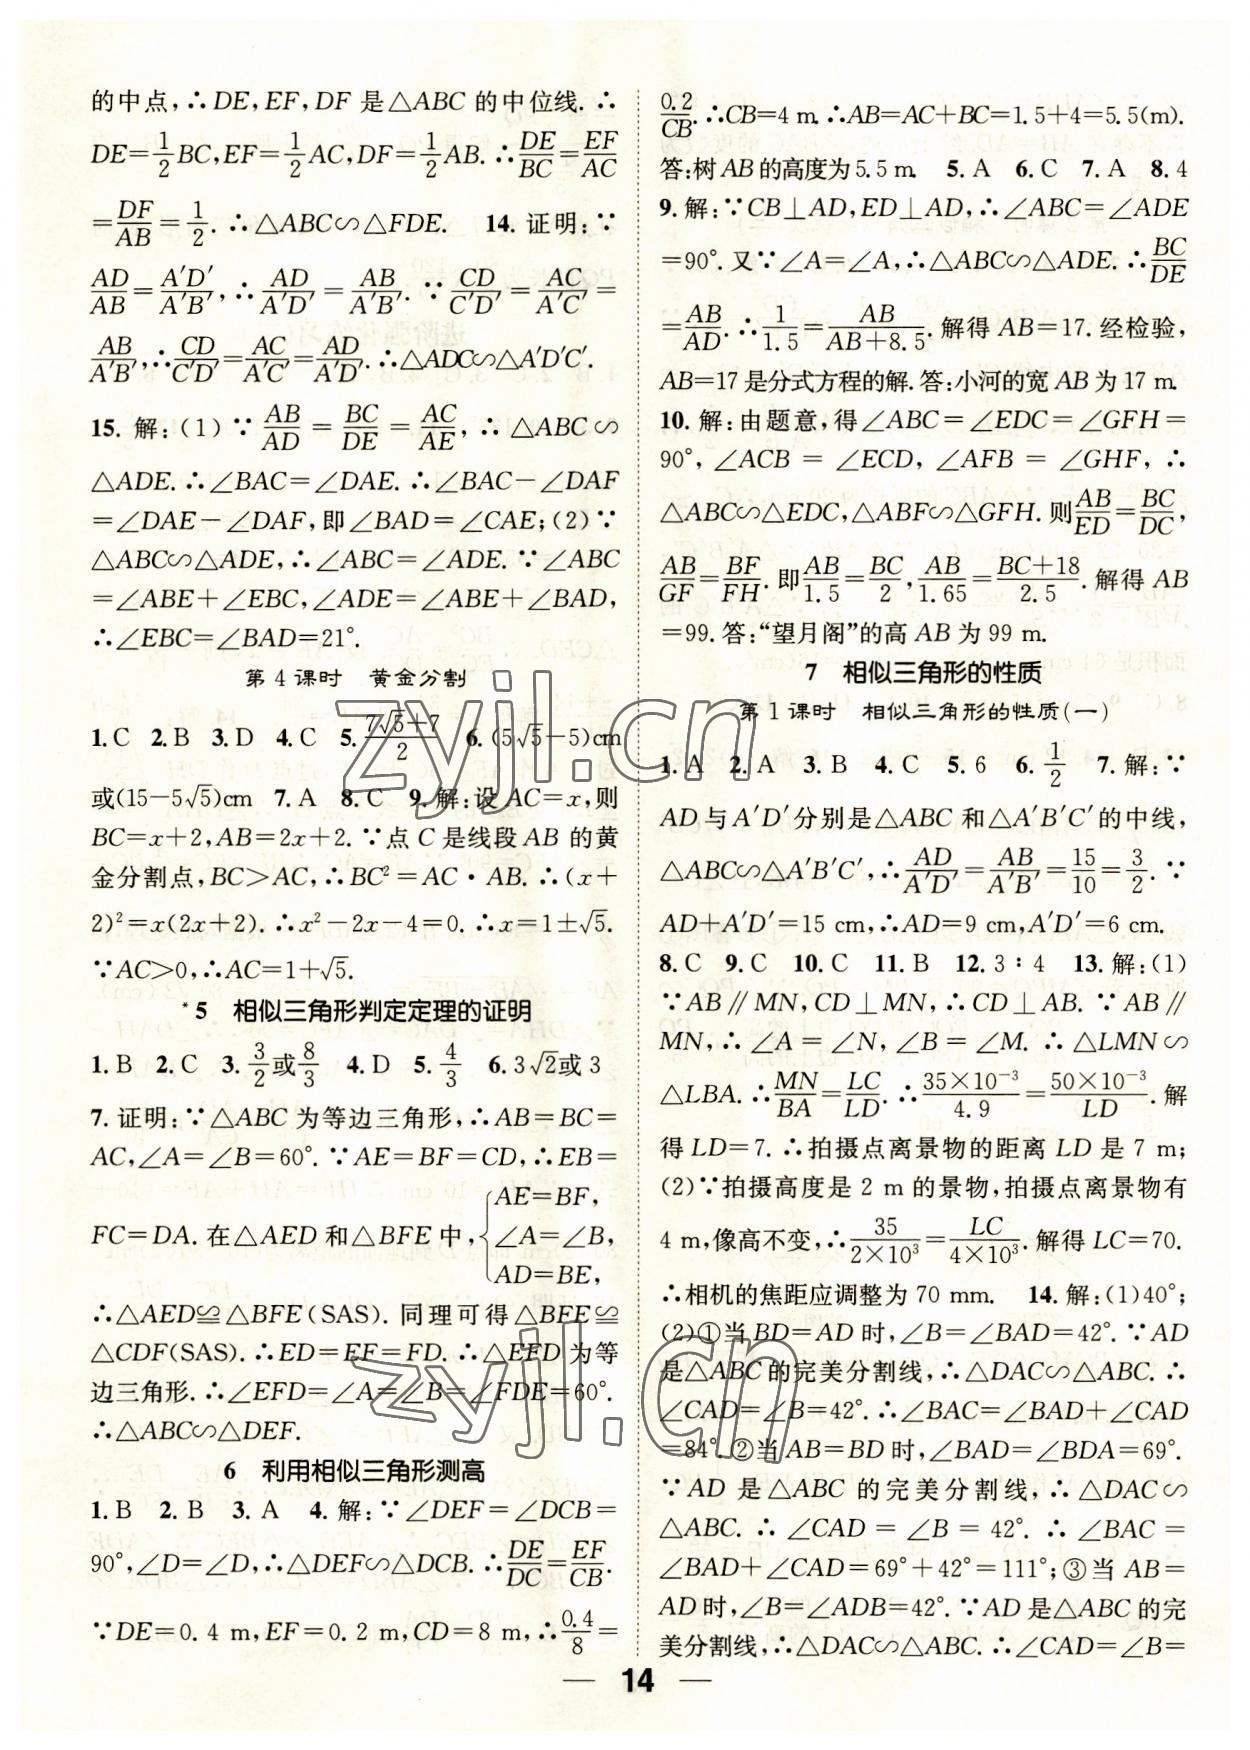 的中点,∴DE,EF,DF 是△ABC 的中位线.∴
DE=1/2BC,EF=1/2AC,DF=1/2AB.∴DE/BC=EF/AC
=DF/AB=1/2.∴△ABC∽△FDE. 14. 证明:∵
AD/AB=A′D′/A′B′,∴AD/A′D′=AB/A′B′.∵CD/C′D′=AC/A′C′=
AB/A′B′,∴CD/C′D′=AC/A′C′=AD/A′D′.∴△ADC∽△A′D′C′.
15. 解:(1)∵AB/AD=BC/DE=AC/AE,∴△ABC∽
△ADE.∴∠BAC=∠DAE.∴∠BAC-∠DAF
=∠DAE-∠DAF,即∠BAD=∠CAE;(2)∵
△ABC∽△ADE,∴∠ABC=∠ADE.∵∠ABC
=∠ABE+∠EBC,∠ADE=∠ABE+∠BAD,
∴∠EBC=∠BAD=21°.
第 4 课时 黄金分割
1. C 2. B 3. D 4. C 5. (7√5+7)/2 6. (5√5-5)cm
或(15-5√5)cm 7. A 8. C 9. 解:设 AC=x,则
BC=x+2,AB=2x+2.∵点 C 是线段 AB 的黄
金分割点,BC>AC,∴BC²=AC·AB.∴(x+
2)²=x(2x+2).∴x²-2x-4=0.∴x=1±√5.
∵AC>0,∴AC=1+√5.
*5 相似三角形判定定理的证明
1. B 2. C 3. 3/2或8/3 4. D 5. 4/3 6. 3√2或 3
7. 证明:∵△ABC 为等边三角形,∴AB=BC=
AC,∠A=∠B=60°.∵AE=BF=CD,∴EB=
FC=DA.在△AED 和△BFE 中,{AE=BF,
∠A=∠B,
AD=BE,
∴△AED≌△BFE(SAS).同理可得△BFE≌
△CDF(SAS).∴ED=EF=FD.∴△EFD 为等
边三角形.∴∠EFD=∠A=∠B=∠FDE=60°.
∴△ABC∽△DEF.
6 利用相似三角形测高
1. B 2. B 3. A 4. 解:∵∠DEF=∠DCB=
90°,∠D=∠D,∴△DEF∽△DCB.∴DE/DC=EF/CB.
∵DE=0.4 m,EF=0.2 m,CD=8 m,∴0.4/8=
0.2/CB.∴CB=4 m.∴AB=AC+BC=1.5+4=5.5(m).
答:树 AB 的高度为 5.5 m. 5. A 6. C 7. A 8. 4
9. 解:∵CB⊥AD,ED⊥AD,∴∠ABC=∠ADE
=90°.又∵∠A=∠A,∴△ABC∽△ADE.∴BC/DE
=AB/AD.∴1/1.5=AB/(AB+8.5).解得 AB=17.经检验,
AB=17 是分式方程的解.答:小河的宽 AB 为 17 m.
10. 解:由题意,得∠ABC=∠EDC=∠GFH=
90°,∠ACB=∠ECD,∠AFB=∠GHF,∴
△ABC∽△EDC,△ABF∽△GFH.则AB/ED=BC/DC,
AB/GF=BF/FH.即AB/1.5=BC/2,AB/1.65=(BC+18)/2.5.解得 AB
=99.答:“望月阁”的高 AB 为 99 m.
7 相似三角形的性质
第 1 课时 相似三角形的性质(一)
1. A 2. A 3. B 4. C 5. 6 6. 1/2 7. 解:∵
AD 与 A′D′分别是△ABC 和△A′B′C′的中线,
△ABC∽△A′B′C′,∴AD/A′D′=AB/A′B′=15/10=3/2.∵
AD+A′D′=15 cm,∴AD=9 cm,A′D′=6 cm.
8. C 9. C 10. C 11. B 12. 3∶4 13. 解:(1)
∵AB∥MN,CD⊥MN,∴CD⊥AB.∵AB∥
MN,∴∠A=∠N,∠B=∠M.∴△LMN∽
△LBA.∴MN/BA=LC/LD.∴35×10⁻³/4.9=50×10⁻³/LD.解
得 LD=7.∴拍摄点离景物的距离 LD 是 7 m;
(2)∵拍摄高度是 2 m 的景物,拍摄点离景物有
4 m,像高不变,∴35/(2×10³)=LC/(4×10³).解得 LC=70.
∴相机的焦距应调整为 70 mm. 14. 解:(1)40°;
(2)①当 BD=AD 时,∠B=∠BAD=42°.∵AD
是△ABC 的完美分割线,∴△DAC∽△ABC.∴
∠CAD=∠B=42°.∴∠BAC=∠BAD+∠CAD
=84°.②当 AB=BD 时,∠BAD=∠BDA=69°.
∵AD 是△ABC 的完美分割线,∴△DAC∽
△ABC.∴∠CAD=∠B=42°.∴∠BAC=
∠BAD+∠CAD=69°+42°=111°;③当 AB=
AD 时,∠B=∠ADB=42°.∵AD 是△ABC 的完
美分割线,∴△DAC∽△ABC.∴∠CAD=∠B=
— 14 —
zyjl.cn
zyjl.cn